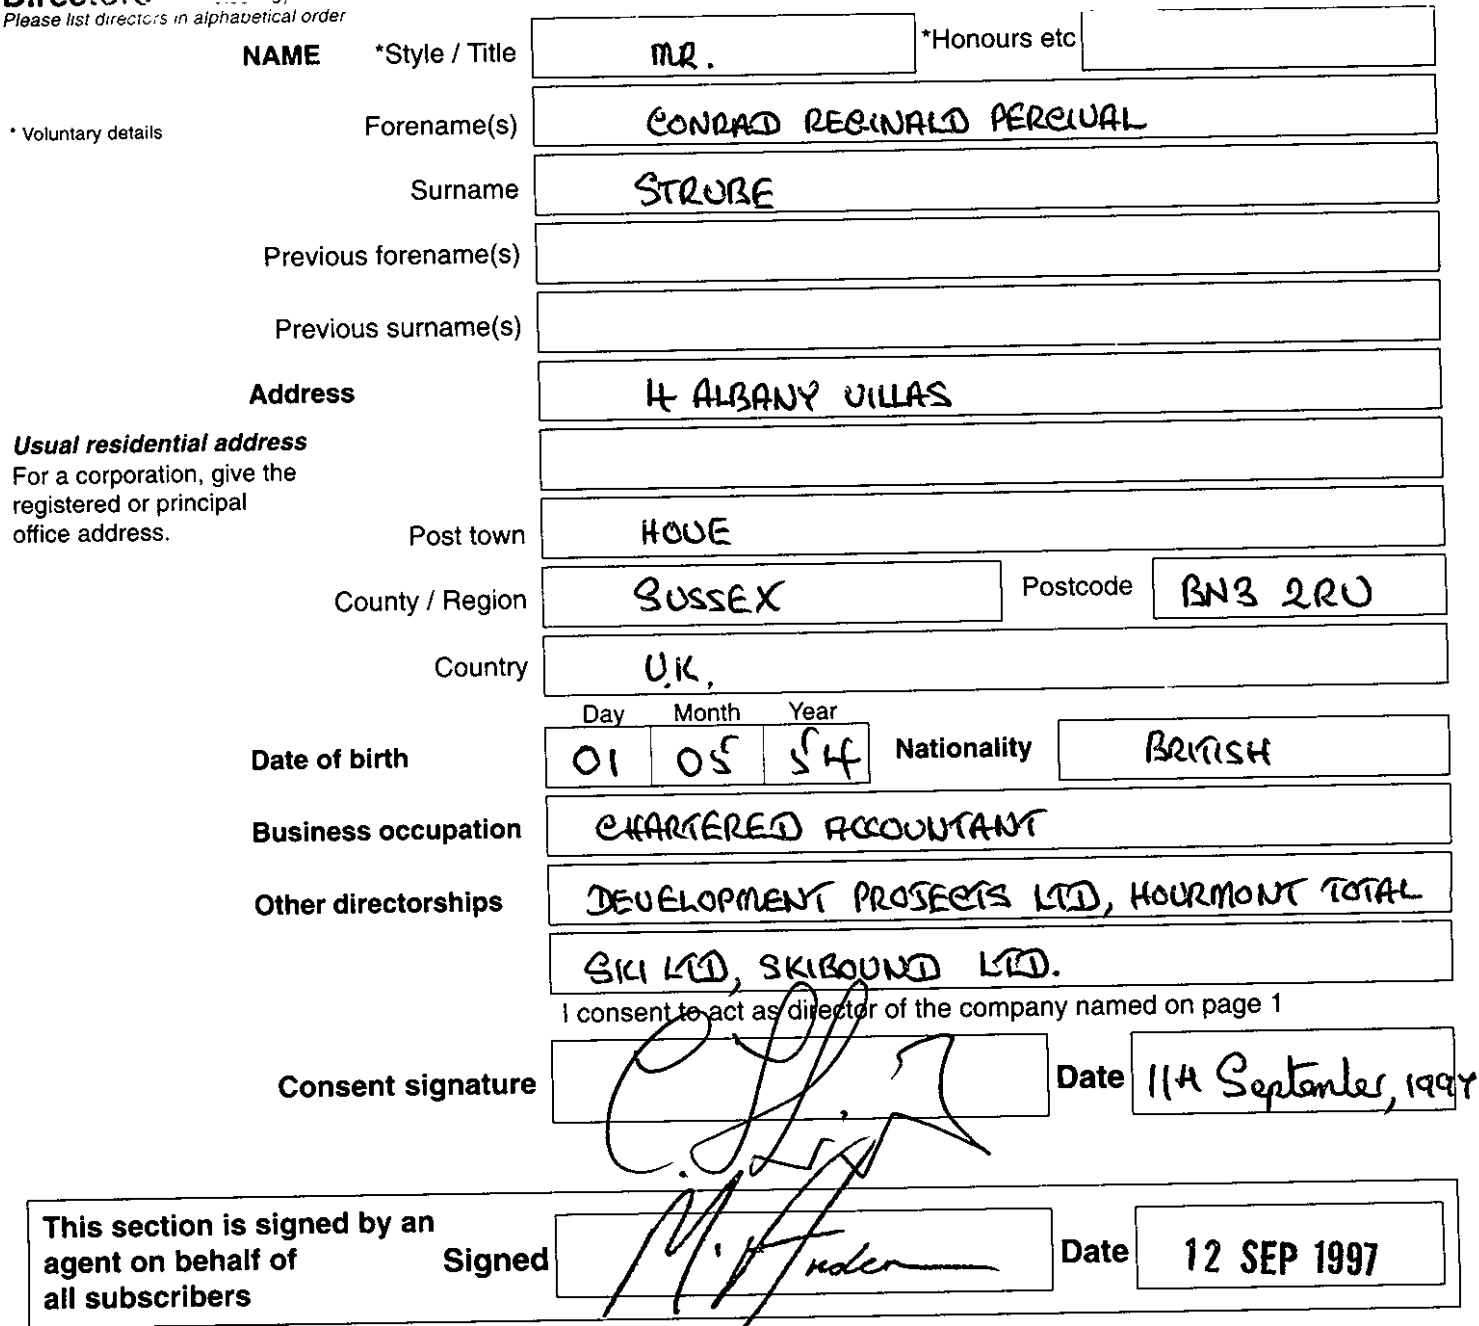 Please list directors in alphabetical order
NAME *Style / Title MR. *Honours etc
* Voluntary details Forename(s) CONRAD REGINALD PERCIVAL
Surname STRUBE
Previous forename(s)
Previous surname(s)
Address 4 ALBANY VILLAS
Usual residential address
For a corporation, give the
registered or principal
office address.
Post town HOVE
County / Region SUSSEX Postcode BN3 2RU
Country U.K.
Day Month Year
Date of birth 01 05 54 Nationality BRITISH
Business occupation CHARTERED ACCOUNTANT
Other directorships DEVELOPMENT PROJECTS LTD, HOURMONT TOTAL
SKI LTD, SKIBOUND LTD.
I consent to act as director of the company named on page 1
Consent signature Date 11th September, 1997
This section is signed by an
agent on behalf of
all subscribers
Signed Date 12 SEP 1997